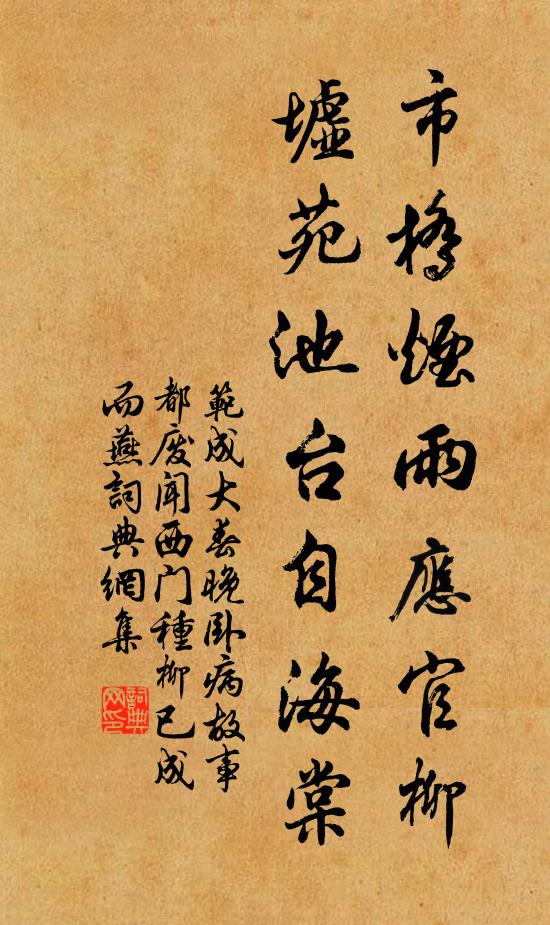 市橋煙雨應官柳
墟苑池台自海棠
範成大春晚卧病故事
都废闻西门種柳已成
而燕詞典網集
詞典网印